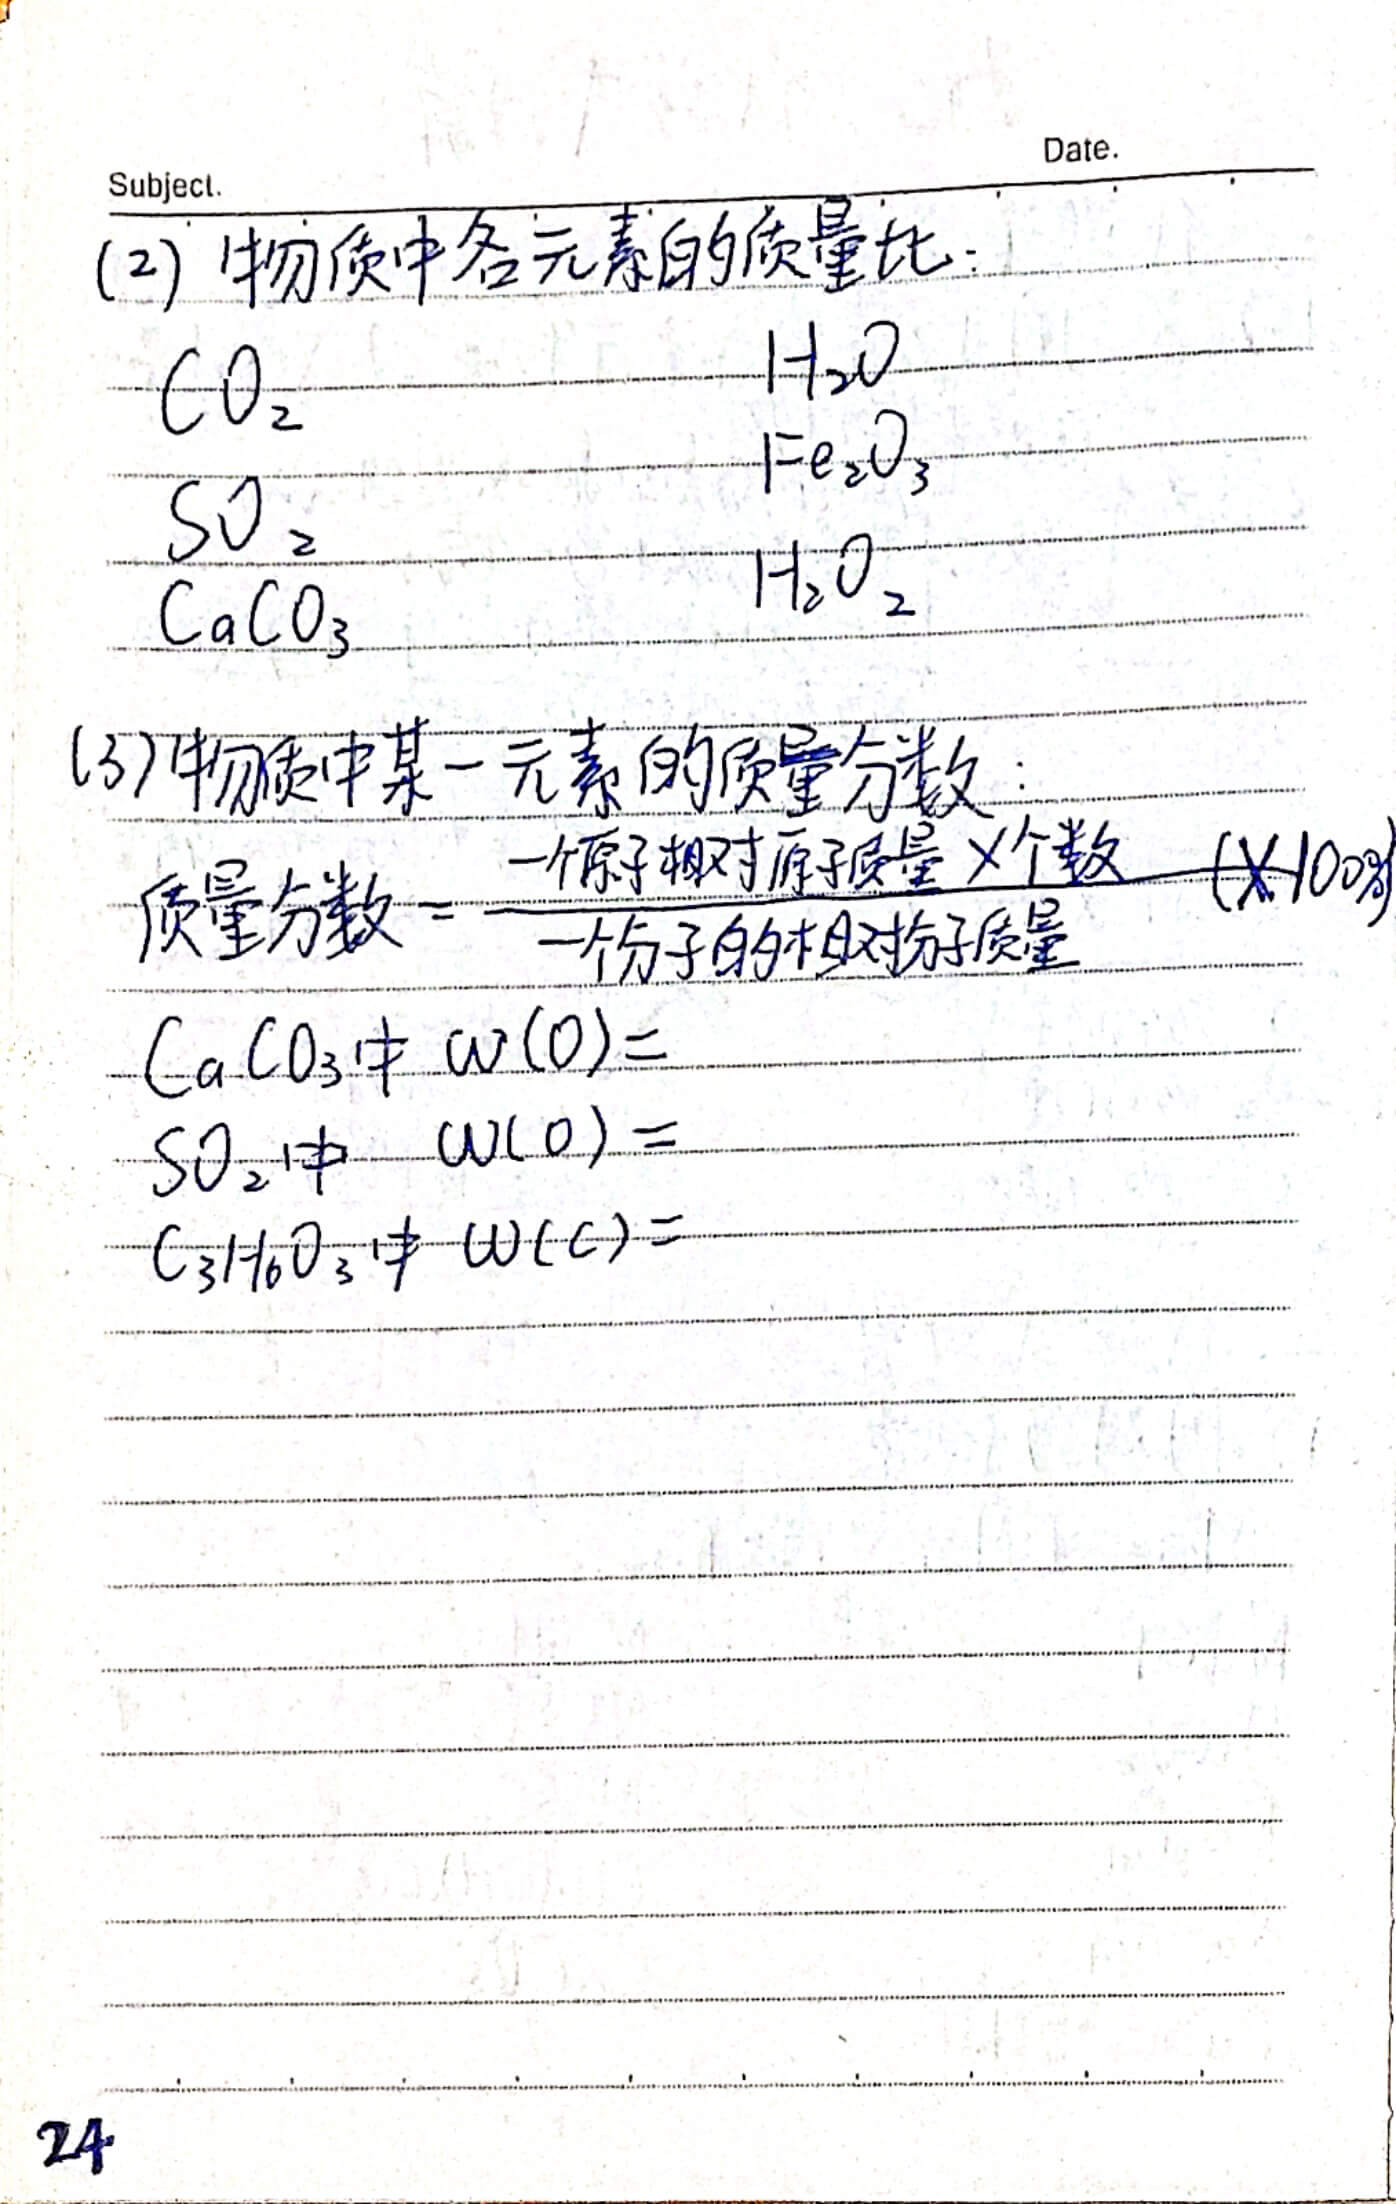 Subject.
Date.
(2) 物质中各元素的质量比:
CO₂ H₂O
Fe₂O₃
SO₂
H₂O₂
CaCO₃
(3) 物质中某一元素的质量分数:
一个原子相对原子质量×个数 (×100%)
质量分数=
一个分子的相对分子质量
CaCO₃中 W(O)=
SO₂中 W(O)=
C₃H₆O₃中 W(C)=
24